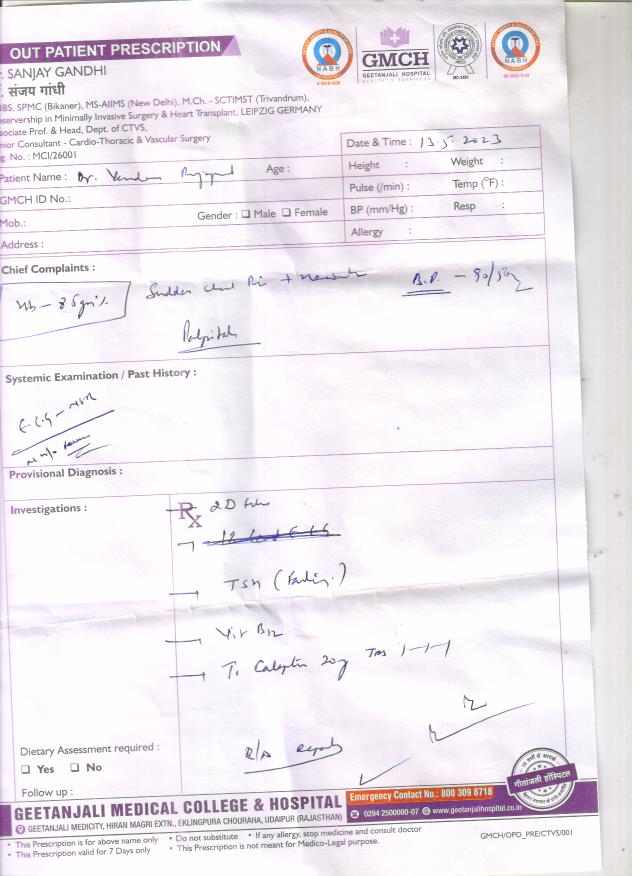 OUT PATIENT PRESCRIPTION
SANJAY GANDHI
संजय गांधी
SPMC (Bikaner), MS-AIIMS (New Delhi), M.Ch. - SCTIMST (Trivandrum),
in Minimally Invasive Surgery & Heart Transplant, LEIPZIG GERMANY
Prof. & Head, Dept. of CTVS,
Consultant - Cardio-Thoracic & Vascular Surgery
No. : MCI/26001
NABH
GMCH
GEETANJALI HOSPITAL
NABH
Date & Time : 13.5.2023
Patient Name : Dr.
Age :
Height :
Weight :
GMCH ID No.:
Pulse (/min) :
Temp (°F) :
Mob.:
Gender : ☐ Male ☐ Female
BP (mm/Hg) :
Resp :
Address :
Allergy :
Chief Complaints :
Hb - 8.5 gm%
Sudden
B.P. - 90/
Systemic Examination / Past History :
E.C.G - NSR
Provisional Diagnosis :
Investigations :
Rx
2D Echo
12 Lead ECG
TSH (Fasting)
Vit B12
T. 20 TDS 1-1-1
R/A Reports
Dietary Assessment required :
☐ Yes ☐ No
Follow up :
गीतांजली हॉस्पिटल
GEETANJALI MEDICAL COLLEGE & HOSPITAL
GEETANJALI MEDICITY, HIRAN MAGRI EXTN., EKLINGPURA CHOURAHA, UDAIPUR (RAJASTHAN)
Emergency Contact No.: 800 309 8718
0294 2500000-07 www.geetanjalihospital.co.in
• This Prescription is for above name only • Do not substitute • If any allergy, stop medicine and consult doctor
• This Prescription valid for 7 Days only • This Prescription is not meant for Medico-Legal purpose.
GMCH/OPD_PRE/CTVS/001